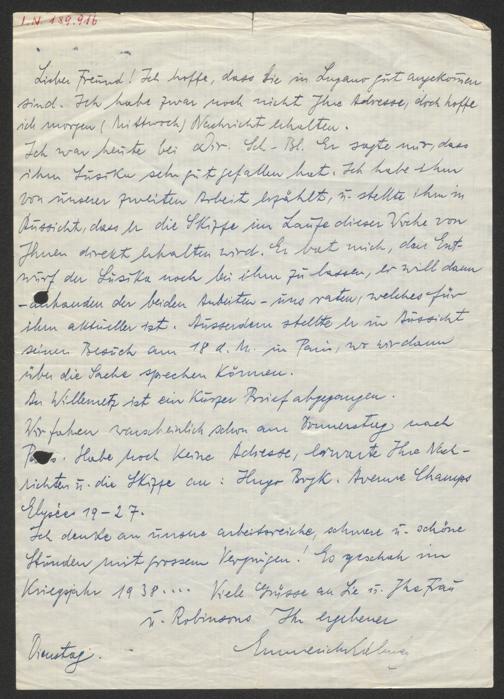 I.N. 189.916
Lieber Freund! Ich hoffe, dass Sie in Lugano gut angekommen
sind. Ich habe zwar noch nicht Ihre Adresse, doch hoffe
ich morgen (Mittwoch) Nachricht erhalten.
Ich war heute bei Dir. Sch-Bl. Er sagte mir, dass
ihm Susika sehr gut gefallen hat. Ich habe ihm
von unserer zweiten Arbeit erzählt, u. stellte ihm in
Aussicht, dass er die Skizze im Laufe dieser Woche von
Ihnen direkt erhalten wird. Er bat mich, den Ent-
wurf der Susika noch bei ihm zu lassen, er will dann
- anhanden der beiden Arbeiten - uns raten, welches für
ihn aktueller ist. Ausserdem stellte er in Aussicht
seinen Besuch am 18 d. M. in Paris, wo wir dann
über die Sache sprechen können.
An Willemetz ist ein kurzer Brief abgegangen.
Wir fahren warscheinlich schon am Donnerstag nach
Habe noch keine Adresse, erwarte Ihre Nach-
richten u. die Skizze an: Hugo Bryk. Avenue Champs
Elysées 19-27.
Ich denke an unsere arbeitsreiche, schwere u. schöne
Stunden mit grossem Vergnügen! Es geschah im
Kriegsjahr 1938.... Viele Grüsse an Sie u. Ihre Frau
u. Robinsons Ihr ergebener
Emmerich
Dienstag.